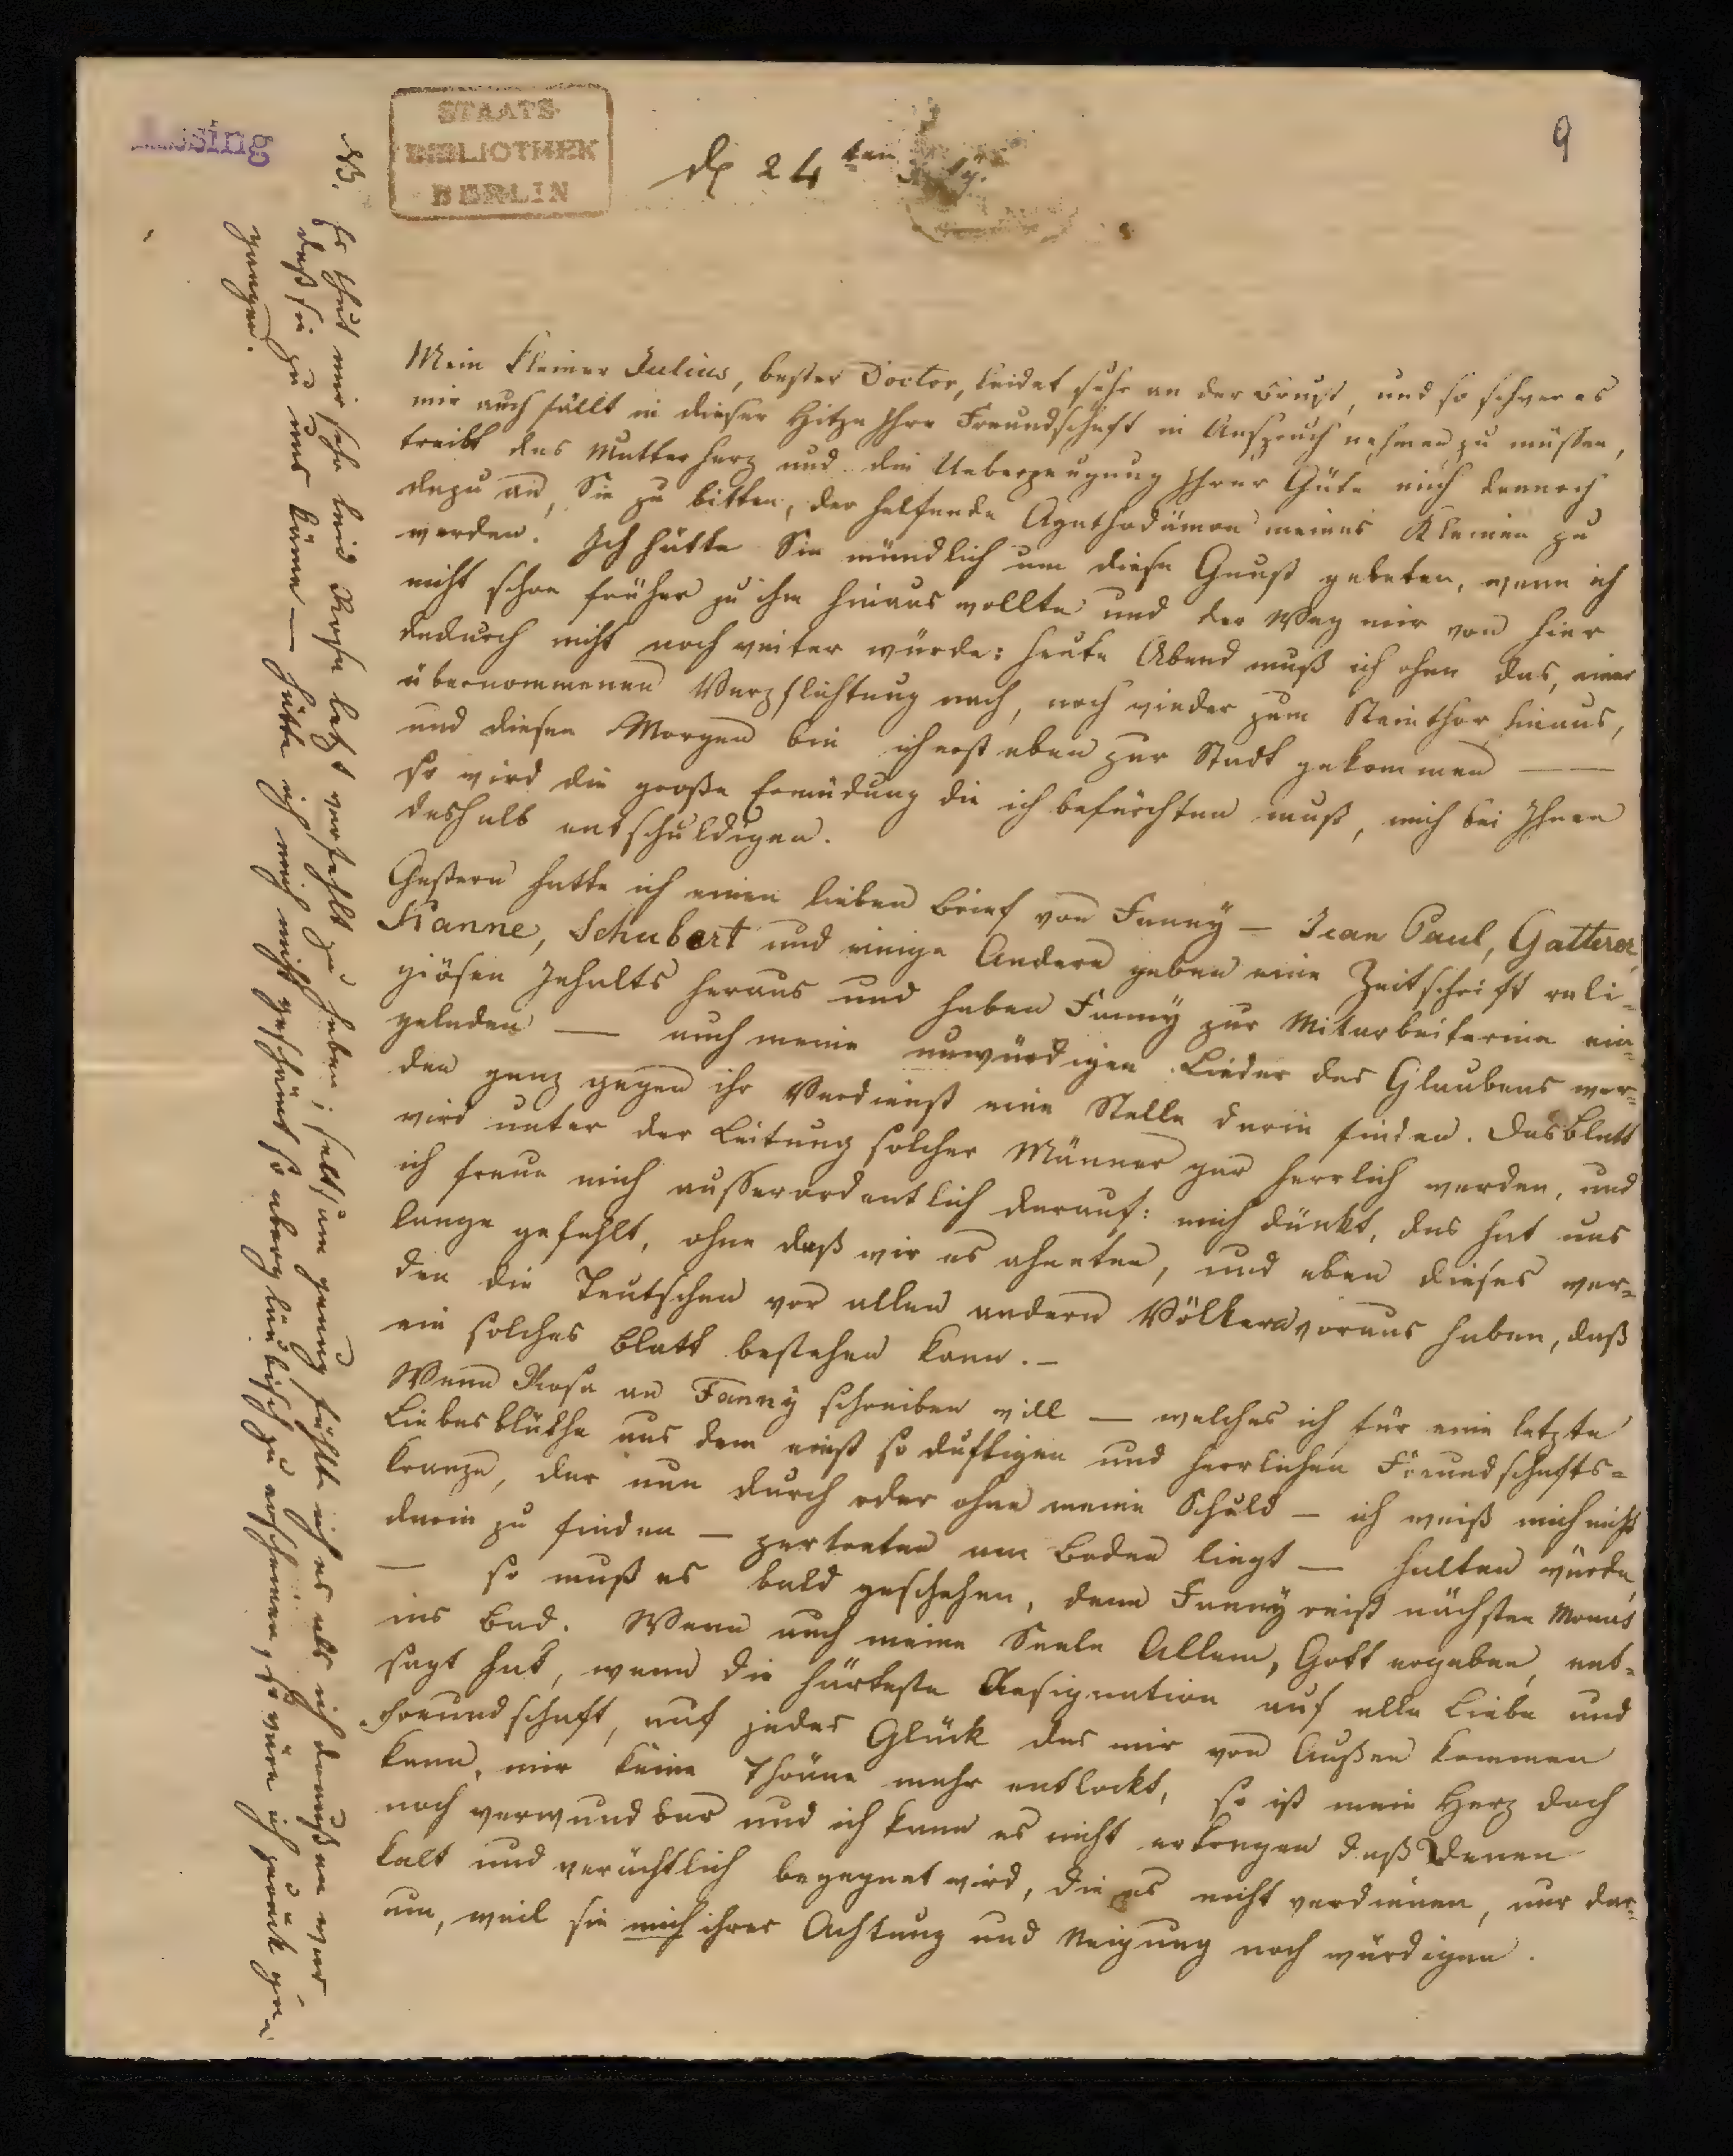 Lessing
STAATS-
BIBLIOTHEK
BERLIN
9
d 24ten July.
Mein kleiner Julius, bester Doctor, leidet sehr an der Brust, und so schwer es
mir auch fällt in dieser Hitze Ihre Freundschaft in Anspruch nehmen zu müssen,
treibt das Mutterherz und die Ueberzeugung Ihrer Güte mich dennoch
dazu an, Sie zu bitten, der helfende Agathodämon meines Kleinen zu
werden. Ich hätte Sie mündlich um diese Gunst gebeten, wenn ich
nicht schon früher zu ihm hinaus wollte und der Weg mir von hier
dadurch nicht noch weiter würde: heute Abend muß ich ohne das, einer
übernommenen Verpflichtung nach, noch wieder zum Steinthor hinaus,
und diesen Morgen bin ich erst eben zur Stadt gekommen —
so wird die große Ermüdung die ich befürchten muß, mich bei Ihnen
deshalb entschuldigen.
Gestern hatte ich einen lieben Brief von Fanny — Jean Paul, Gatterer,
Kanne, Schubert und einige Andere geben eine Zeitschrift reli-
giösen Inhalts heraus und haben Fanny zur Mitarbeiterinn ein-
geladen — auch meine unwürdigen Lieder des Glaubens wer-
den ganz gegen ihr Verdienst eine Stelle darin finden. Das Blatt
wird unter der Leitung solcher Männer gar herrlich werden, und
ich freue mich ausserordentlich darauf: mich dünkt, das hat uns
lange gefehlt, ohne daß wir es ahneten, und eben dieses wer-
den die Teutschen vor allen andern Völkern voraus haben, daß
ein solches Blatt bestehen kann. —
Wenn Rosa an Fanny schreiben will — welches ich für eine letzte
Liebesblüthe aus dem einst so duftigen und herrlichen Freundschafts-
kranze, der nun durch oder ohne meine Schuld — ich weiß mich nicht
darin zu finden — zertreten am Boden liegt — halten würde,
— so muß es bald geschehen, denn Fanny reist nächsten Monat
ins Bad. Wenn auch meine Seele Allem, Gott ergeben, ent-
sagt hat, wenn die härteste Resignation auf alle Liebe und
Freundschaft, auf jedes Glück das mir von Außen kommen
kann, mir keine Thräne mehr entlockt, so ist mein Herz doch
noch verwundbar und ich kann es nicht ertragen daß Denen
kalt und verächtlich begegnet wird, die es nicht verdienen, nur dar-
um, weil sie mich ihrer Achtung und Neigung noch würdigen.
NB. Es thut mir sehr leid Rosa letzt verfehlt zu haben; seltsam genug fühlte ich es als ich draußen war
daß sie zu uns käme — hätte ich mich nicht geschämt so abergläubisch zu erscheinen, so wäre ich zurück ge-
gangen.